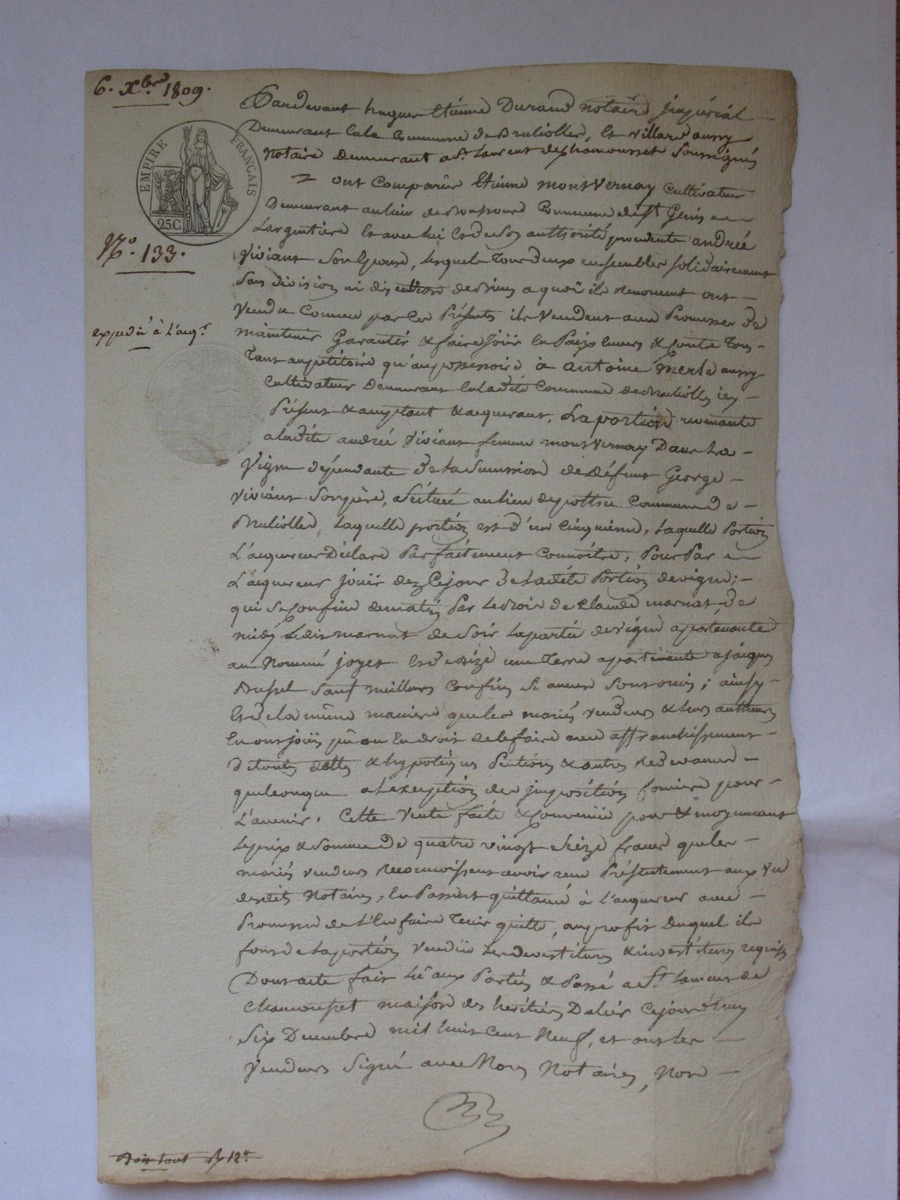 6. Xbre 1809.
EMPIRE FRANÇAIS
25C
N.o 133.
expedié à l'acq.r
Pardevant hugues Etienne Durand Notaire Jmpérial
Demeurant en la Commune de Brulioles, et villard aussy
Notaire demeurant a St. Laurent de chamousset Soussignés
ont Comparûs Etienne montvernay Cultivateur
Demeurant au lieu de Commune de St. Genis
L'argentiere Et avec lui Et de son authorité procedente andrée
Viviant son Epouse, lesquels Tous deux ensembles solidairement
sans division ni discution de biens a quoi ils renoncent ont
Vendu Comme par Ces Présentes ils Vendent avec Promesse de
maintenir Garantir & faire joüir En Paix envers & contre Tous
Tant au petitoire qu'au possessoire à antoine merle aussy
Cultivateur demeurant en ladite Commune de Brulioles icy
Présent & acceptant & acquerant, La portion revenante
a ladite andrée Viviant femme montvernay Dans la
Vigne dépendante de la Succession de defunt George
Viviant son père, Scituée au lieu de Commune de
Brulioles, laquelle portion est d'un Cinquième, Laquelle Portion
L'acquereur Déclare Parfaitement Connoitre, Pour Par
L'acquereur joüir dez Ce jour de ladite Portion de vigne;
qui se Confine de matin Par le de Claude marnat, de
midy Ledit marnat de soir la partie de vigne apartenante
au Nommé joyet Et de bize une Terre apartenante a jacques
sauf meilleurs Confins si aucun sont omis; ainsy
Et de la même maniere que les mariés vendeurs & leurs autheurs
En ont joüis pû ou En droit de le faire avec affranchissement
de toutes dettes & hypoteques Pentions & autres Redevances
quelconque a l'exception des jmposition foncière pour
L'avenir. Cette Vente faite & Convenüe pour & moyennant
Le prix & Somme de quatre vingt Seize francs que les
mariés vendeurs Reconnoissent avoir reçu Présentement aux Vu
desdits Notaires, En Passent quittance à l'acquereur avec
Promesse de l'En faire Tenir quitte, au profit duquel ils
font de la portion Vendüe Les devestitures & investitures requises
Dont acte fait Lû aux Parties & Passé a St. Laurent de
Chamousset maison des heritiers Dalier Ce jourd'huy
Six Decembre mil huit Cent Neuf, et ont les
Vendeurs Signé avec Nous Notaires, Non